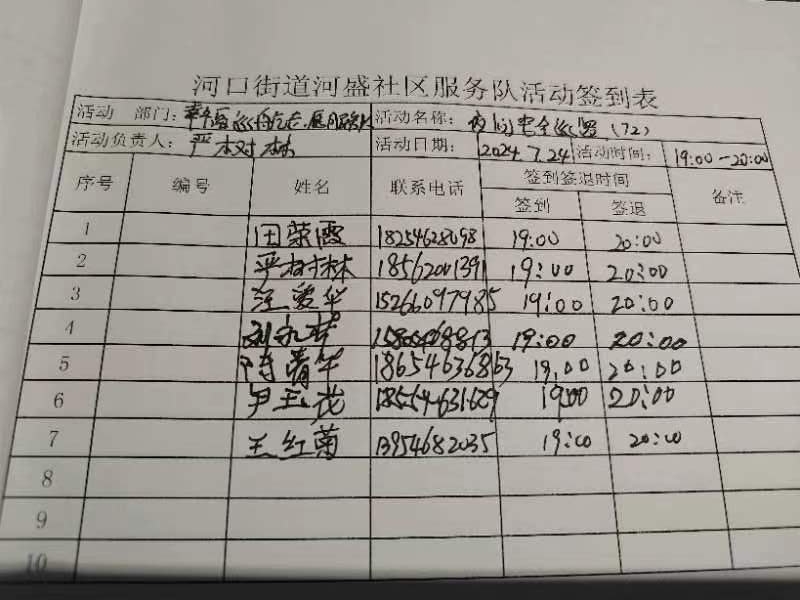 河口街道河盛社区服务队活动签到表
活动 部门： 活动名称： 夜间安全巡逻（72）
活动负责人：严树林 活动日期： 2024.7.24 活动时间： 19:00-20:00
序号 编号 姓名 联系电话 签到签退时间 备注
签到 签退
1 田荣霞 19:00 20:00
2 严树林 19:00 20:00
3 汪爱华 15266097985 19:00 20:00
4 19:00 20:00
5 青华 18654636863 19.00 20:00
6 尹玉茂 18554631629 19:00 20:00
7 王红菊 13954682035 19:00 20:00
8
9
10